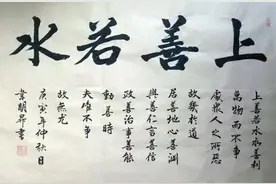 上善若水
上善若水水善利
萬物而不爭
處眾人之所惡
故幾於道
居善地心善淵
與善仁言善信
政善治事善能
動善時
夫唯不爭
故無尤
庚寅年仲秋月
韋明昇書